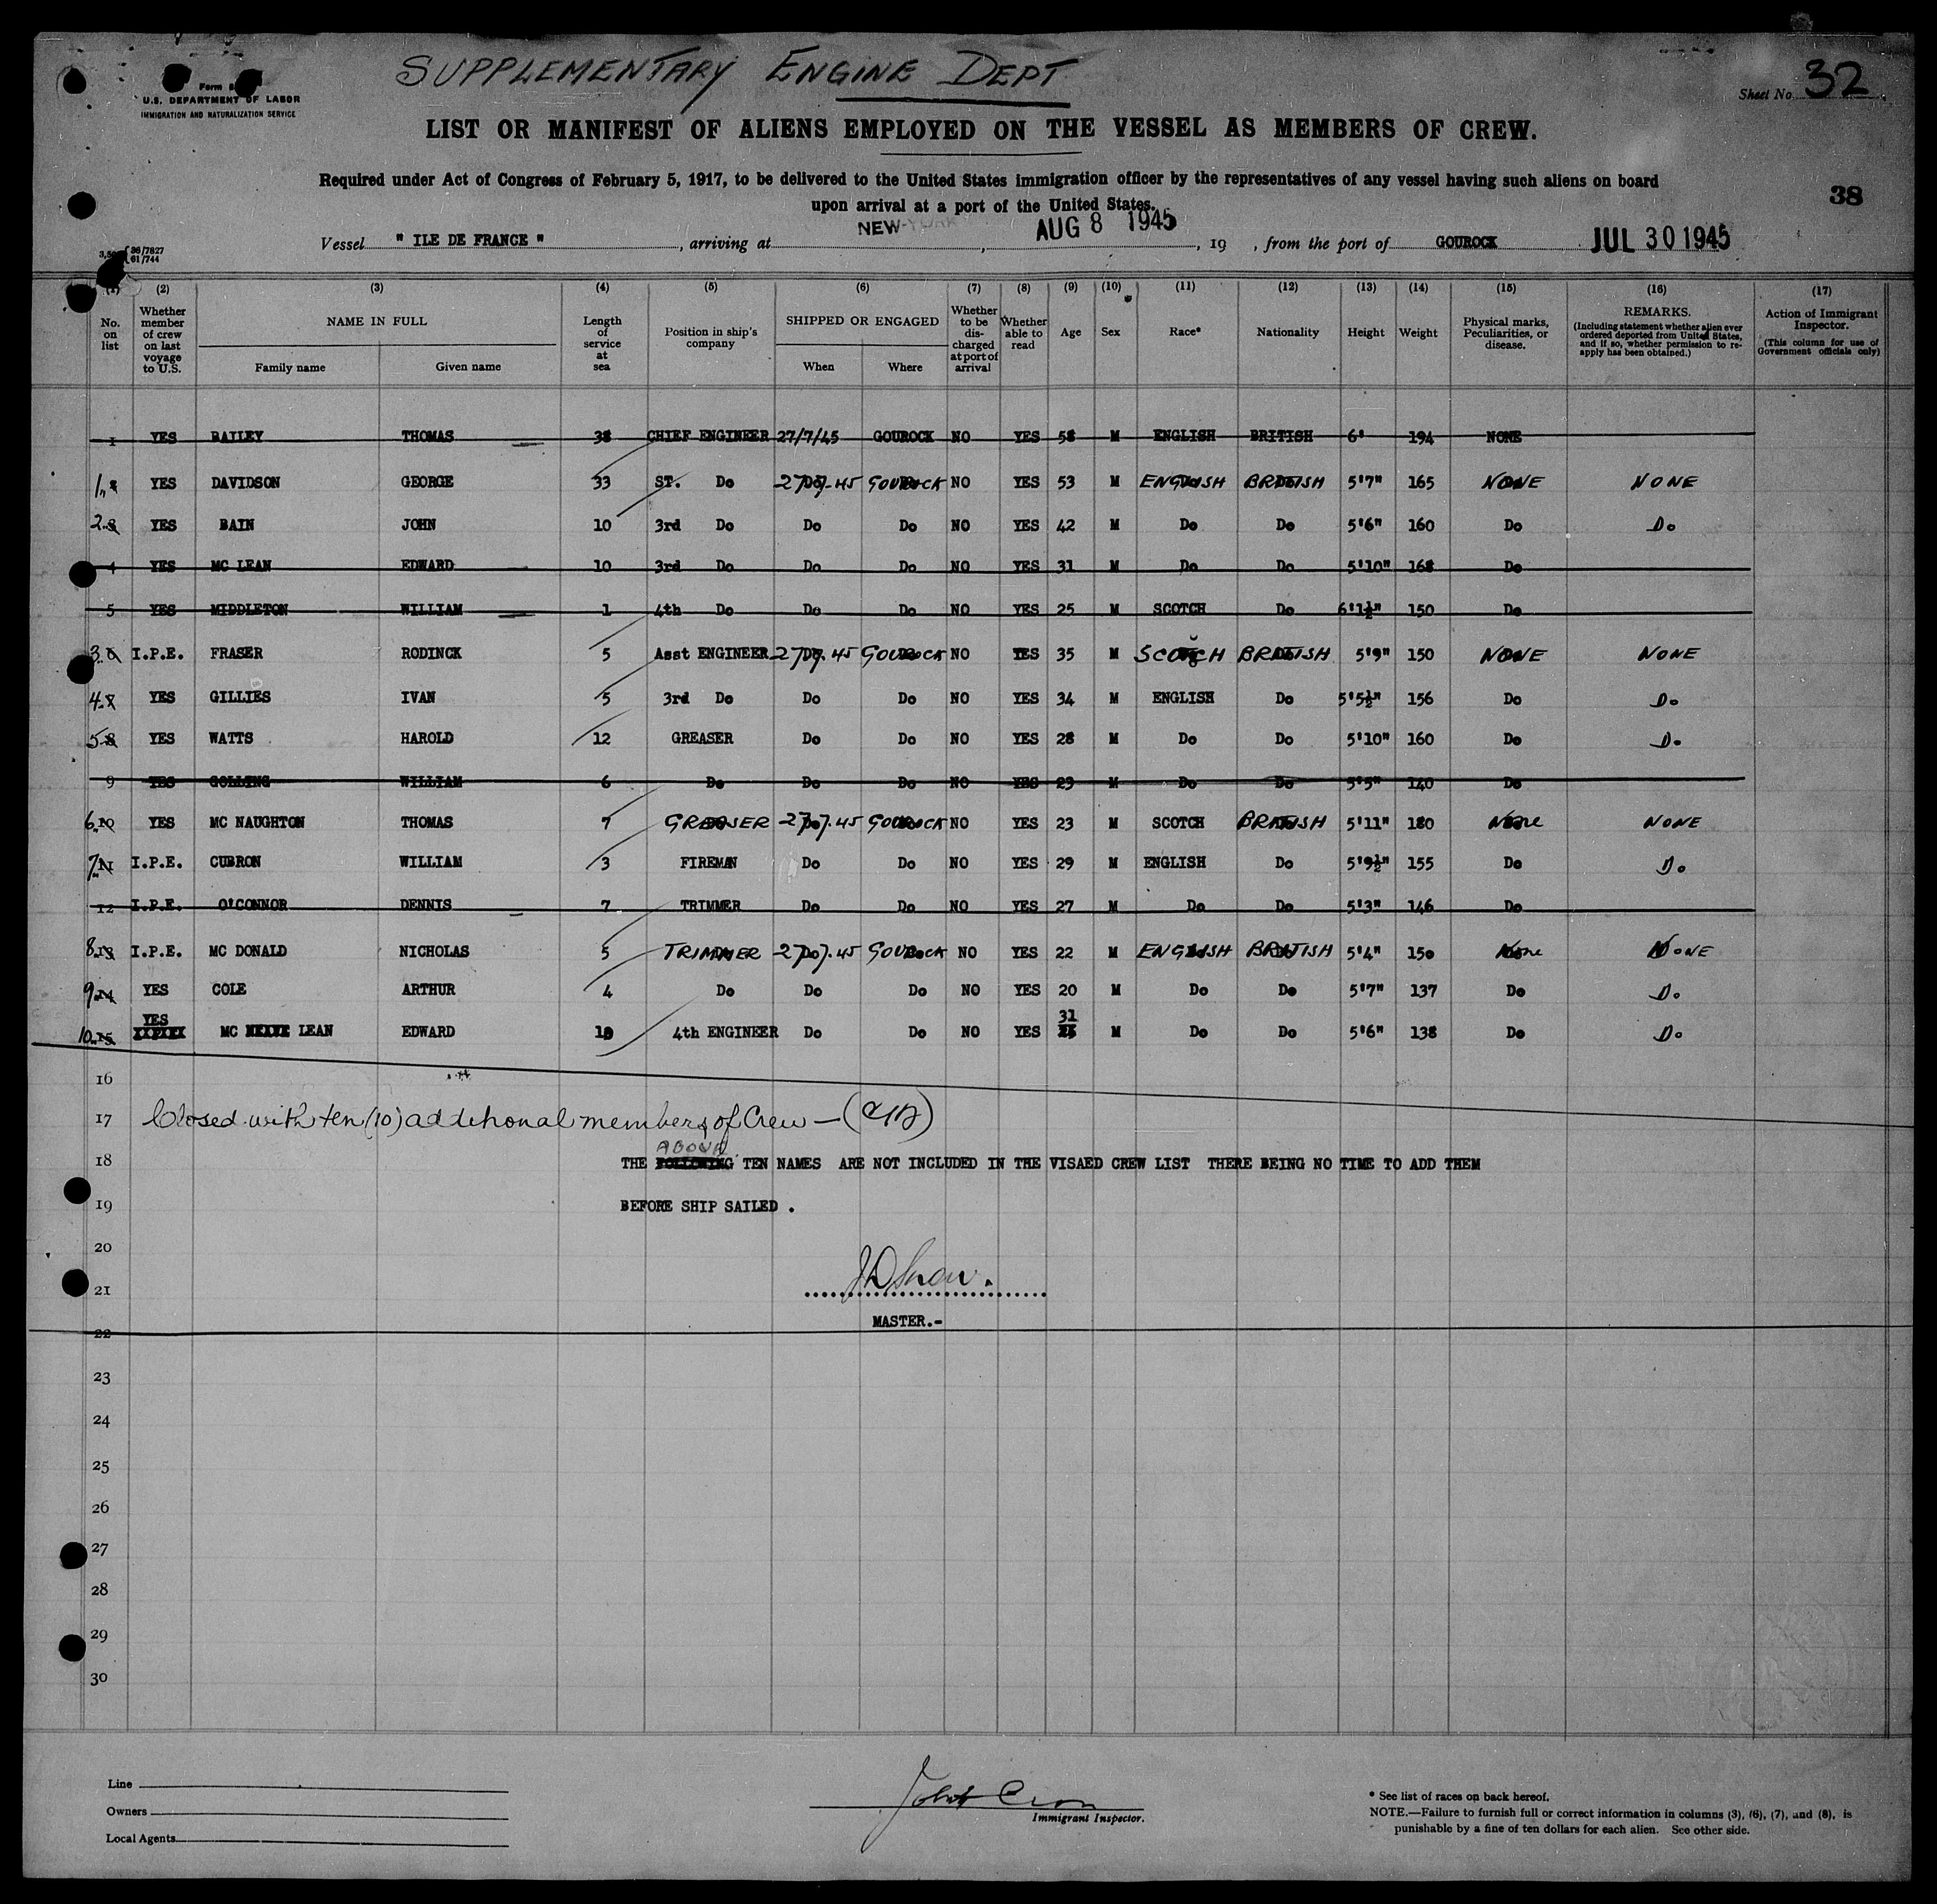 SUPPLEMENTARY ENGINE DEPT
Form
U.S. DEPARTMENT OF LABOR
IMMIGRATION AND NATURALIZATION SERVICE
Sheet No. 32
LIST OR MANIFEST OF ALIENS EMPLOYED ON THE VESSEL AS MEMBERS OF CREW.
Required under Act of Congress of February 5, 1917, to be delivered to the United States immigration officer by the representatives of any vessel having such aliens on board
upon arrival at a port of the United States.
38
Vessel " ILE DE FRANCE " , arriving at NEW-YORK , AUG 8 1945 , 19 , from the port of GOUROCK JUL 30 1945
36/7827
61/744
(1) (2) (3) (4) (5) (6) (7) (8) (9) (10) (11) (12) (13) (14) (15) (16) (17)
No. on list
Whether member of crew on last voyage to U.S.
NAME IN FULL
Family name
Given name
Length of service at sea
Position in ship's company
SHIPPED OR ENGAGED
When
Where
Whether to be discharged at port of arrival
Whether able to read
Age
Sex
Race*
Nationality
Height
Weight
Physical marks, Peculiarities, or disease.
REMARKS.
(Including statement whether alien ever ordered deported from United States, and if so, whether permission to reapply has been obtained.)
Action of Immigrant Inspector.
(This column for use of Government officials only)
1 YES BAILEY THOMAS 38 CHIEF ENGINEER 27/7/45 GOUROCK NO YES 58 M ENGLISH BRITISH 6' 194 NONE
1. 2 YES DAVIDSON GEORGE 33 ST. Do 27.7.45 GOUROCK NO YES 53 M ENGLISH BRITISH 5'7" 165 NONE NONE
2. 3 YES BAIN JOHN 10 3rd Do Do Do NO YES 42 M Do Do 5'6" 160 Do Do
4 YES MC LEAN EDWARD 10 3rd Do Do Do NO YES 31 M Do Do 5'10" 168 Do
5 YES MIDDLETON WILLIAM 1 4th Do Do Do NO YES 25 M SCOTCH Do 6'1½" 150 Do
3. 6 I.P.E. FRASER RODINCK 5 Asst ENGINEER 27.7.45 GOUROCK NO YES 35 M SCOTCH BRITISH 5'9" 150 NONE NONE
4. 7 YES GILLIES IVAN 5 3rd Do Do Do NO YES 34 M ENGLISH Do 5'5½" 156 Do Do
5. 8 YES WATTS HAROLD 12 GREASER Do Do NO YES 28 M Do Do 5'10" 160 Do Do
9 YES GOLLING WILLIAM 6 Do Do Do NO YES 23 M Do Do 5'5" 140 Do
6. 10 YES MC NAUGHTON THOMAS 7 GREASER 27.7.45 GOUROCK NO YES 23 M SCOTCH BRITISH 5'11" 180 None NONE
7. 11 I.P.E. CUBRON WILLIAM 3 FIREMAN Do Do NO YES 29 M ENGLISH Do 5'9½" 155 Do
12 I.P.E. O'CONNOR DENNIS 7 TRIMMER Do Do NO YES 27 M Do Do 5'3" 146 Do
8. 13 I.P.E. MC DONALD NICHOLAS 5 TRIMMER 27.7.45 GOUROCK NO YES 22 M ENGLISH BRITISH 5'4" 150 None NONE
9. 14 YES COLE ARTHUR 4 Do Do Do NO YES 20 M Do Do 5'7" 137 Do Do
YES 31
10. 15 MC LEAN EDWARD 10 4th ENGINEER Do Do NO YES M Do Do 5'6" 138 Do Do
16
17 Closed with ten (10) additional members of Crew —
ABOVE
18 THE FOLLOWING TEN NAMES ARE NOT INCLUDED IN THE VISAED CREW LIST THERE BEING NO TIME TO ADD THEM
19 BEFORE SHIP SAILED .
20
21
MASTER.-
22
23
24
25
26
27
28
29
30
Line
Owners
Local Agents
Immigrant Inspector.
* See list of races on back hereof.
NOTE.—Failure to furnish full or correct information in columns (3), (6), (7), and (8), is
punishable by a fine of ten dollars for each alien. See other side.